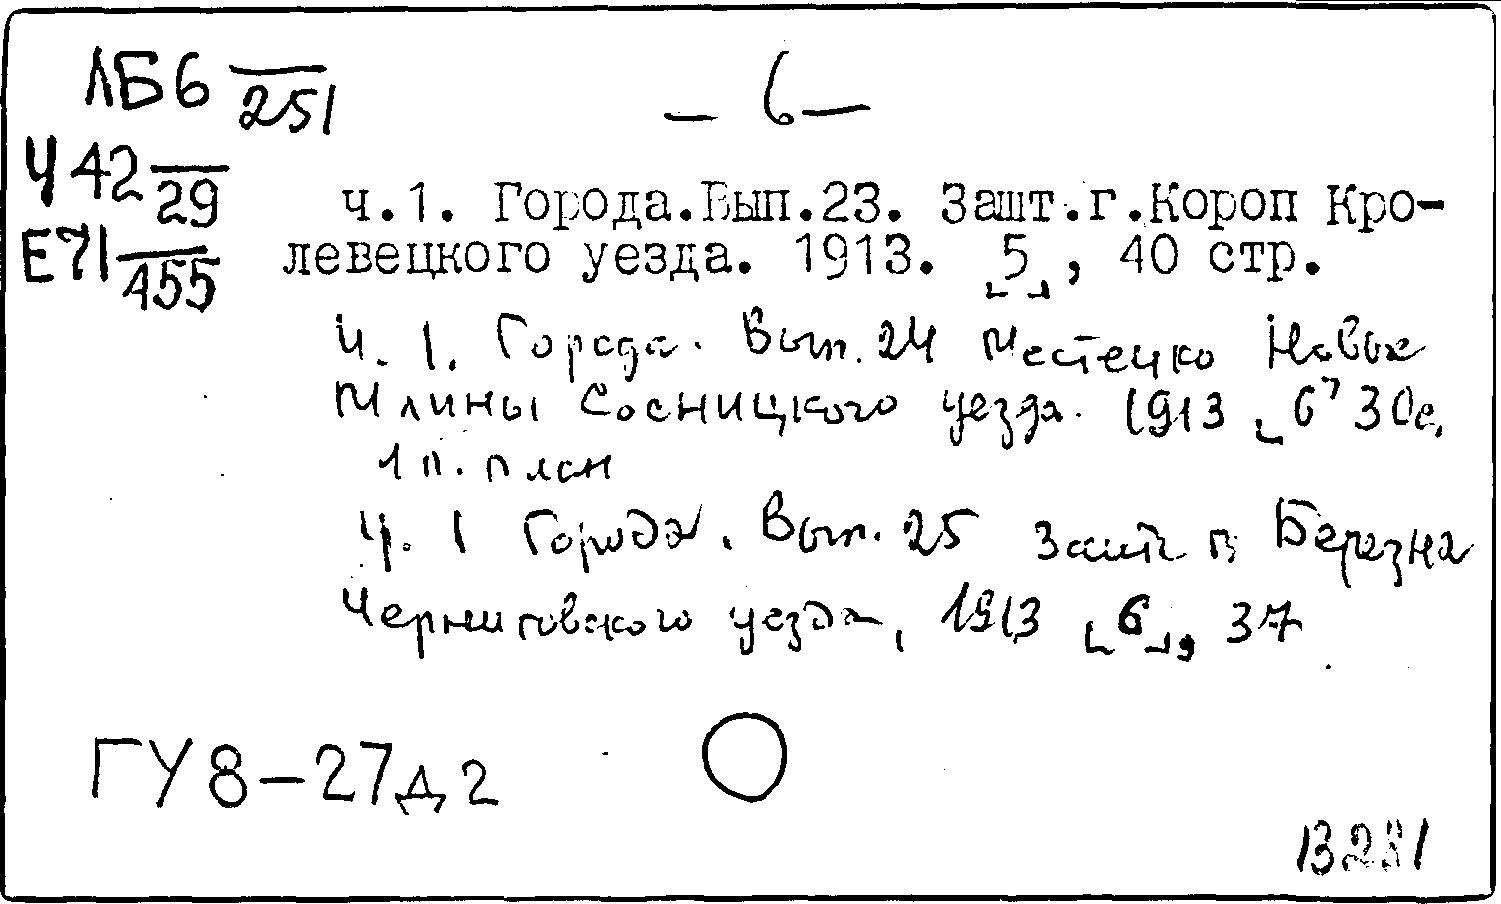 ЛБ6 251
– 6 –
Ч 42 29
Е71 455
ч.1. Города.Вып.23. Зашт.г.Короп Кро-
левецкого уезда. 1913. [5], 40 стр.
Ч. 1. Города. Вып. 24 Местечко Новые
Млины Сосницкого уезда. 1913 [6] 30с.
1 л. план
Ч. 1 Города. Вып. 25 Зашт г. Березна
Черниговского уезда, 1913 [6], 37
ГУ 8-27д2